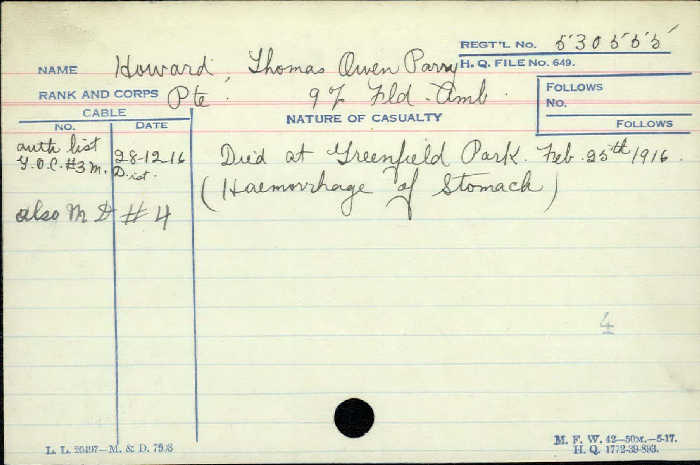 REGT'L No. 530555
NAME Howard Thomas Owen Parry H. Q. FILE NO. 649.
RANK AND CORPS Pte. 9th Fld. Amb.
FOLLOWS
No.
FOLLOWS
CABLE
No. DATE
NATURE OF CASUALTY
auth list 28-12-16 Died at Greenfield Park. Feb. 25th 1916.
G.O.C. #3 M. Dist.
(Haemorrhage of Stomach)
also M D #4
4
L. L. 26497—M. & D. 7593
M. F. W. 42—50M.—5-17.
H. Q. 1772-39-893.